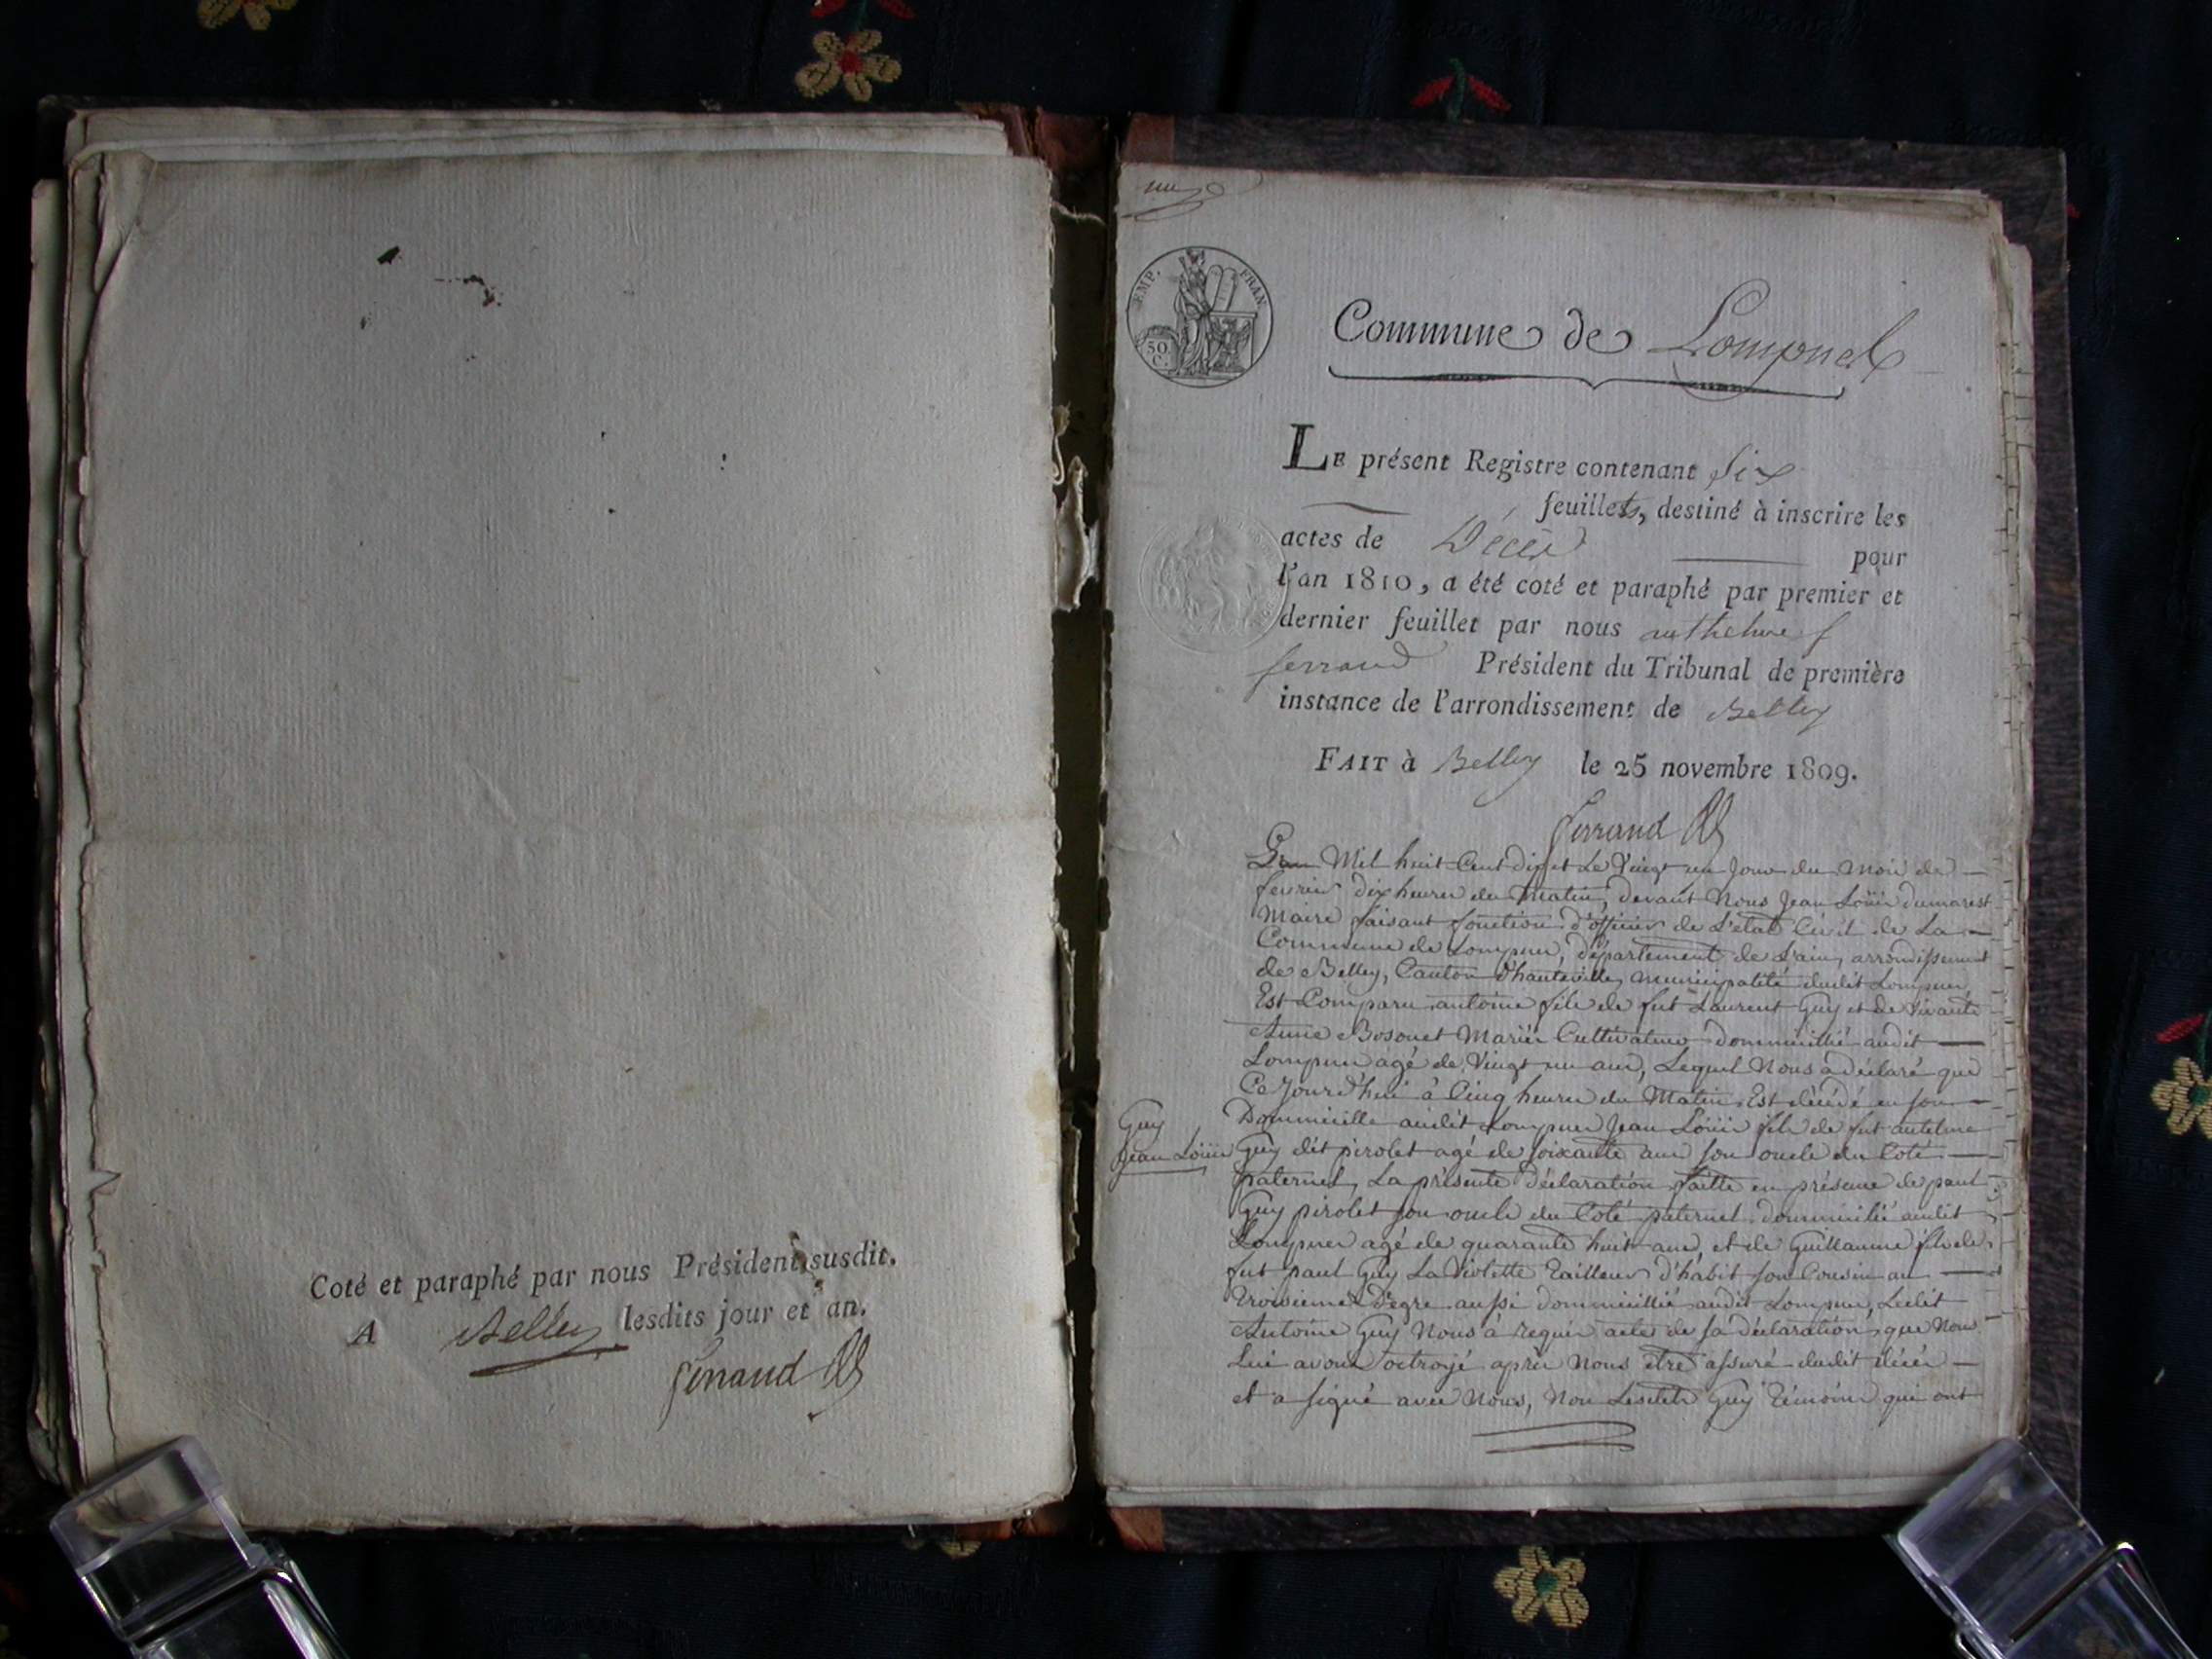 Coté et paraphé par nous Président susdit.
A Belley lesdits jour et an.
ferrand
un
EMP. FRAN.
50 C.
Commune de Lompnes
LE présent Registre contenant six
feuillets, destiné à inscrire les
actes de Décès pour
l'an 1810, a été coté et paraphé par premier et
dernier feuillet par nous anthelme
ferrand Président du Tribunal de première
instance de l'arrondissement de Belley
FAIT à Belley le 25 novembre 1809.
ferrand
L'an Mil huit Cent dix et Le Vingt un Jour du mois de
fevrier dix heures du Matin, devant Nous Jean Loüis dumarest
Maire faisant fonction d'officier de L'etat Civil de La
Commune de Lompnes, département de L'ain, arrondissement
de Belley, Canton d'hauteville, municipalité dudit Lompnes,
Est Comparu antoine fils de fut Laurent Guy et de Vivante
Anne Bosonet Mariés Cultivateur dommicillié audit
Lompnes agé de Vingt un ans, Lequel Nous a déclaré que
Ce Jourd'hui à Cinq heures du Matin Est décédé en son
Dommicille audit Lompnes Jean Loüis fils de fut antelme
Guy
Jean Loüis
Guy dit pirolet agé de soixante ans son oncle du Coté
paternel, La présente déclaration faitte en présence de paul
Guy pirolet son oncle du Coté paternel dommicilié audit
Lompnes agé de quarante huit ans, et de Guillaume fils de
fut paul Guy La Violette Tailleur d'habit son Cousin au
troisieme Degre aussi dommicillié audit Lompnes, Ledit
Antoine Guy Nous à requis acte de sa déclaration, que Nous
Lui avons octroyé après Nous être assuré dudit décès
et a signé avec Nous, Non Lesdits Guy Témoins qui ont